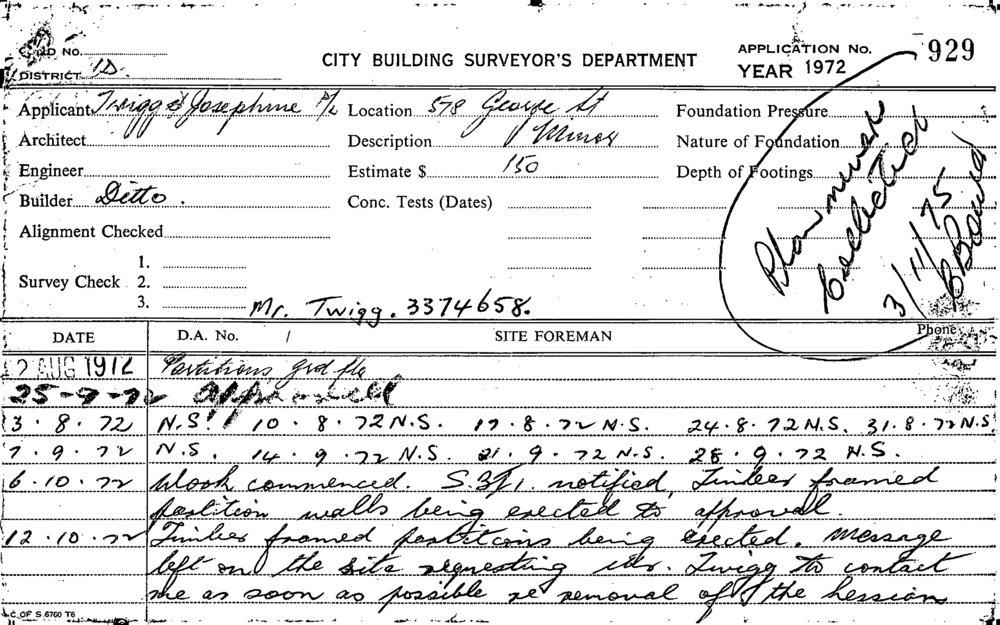 CARD NO.
DISTRICT 1D.
CITY BUILDING SURVEYOR'S DEPARTMENT
APPLICATION No. 929
YEAR 1972
Applicant Twigg & Josephine P/L Location 578 George St Foundation Pressure
Architect Description Minor Nature of Foundation
Engineer Estimate $ 150 Depth of Footings
Builder Ditto. Conc. Tests (Dates)
Alignment Checked
Survey Check 1.
2.
3.
Mr. Twigg. 3374658.
Plan
Collected
3/11/75
DATE D.A. No. / SITE FOREMAN Phone
2 AUG 1972 Partitions Grd flr
25-7-72 approved
3.8.72 N.S. 10.8.72 N.S. 17.8.72 N.S. 24.8.72 N.S. 31.8.72 N.S.
7.9.72 N.S. 14.9.72 N.S. 21.9.72 N.S. 28.9.72 N.S.
6.10.72 Work commenced. S.3/1. notified, Timber framed
partition walls being erected to approval.
12.10.72 Timber framed partitions being erected. Message
left on the site requesting Mr. Twigg to contact
me as soon as possible re removal of the hessian
C. OF S. 6760 T6